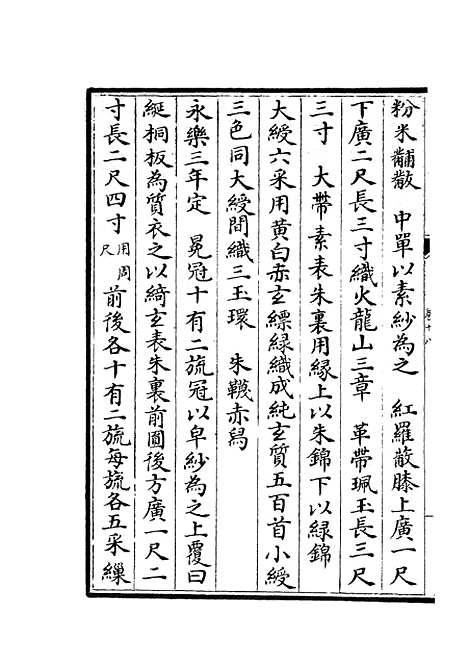 粉米黼黻　中單以素紗為之　紅羅蔽膝上廣一尺
下廣二尺長三寸織火龍山三章　革帶珮玉長三尺
三寸　大帶素表朱裏用緣上以朱錦下以綠錦
大綬六采用黄白赤玄縹緑織成純玄質五百首小綬
三色同大綬間織三玉環　朱韈赤舄
永樂三年定　冕冠十有二旒冠以皁紗為之上覆曰
綖桐板為質衣之以綺玄表朱裏前圓後方廣一尺二
寸長二尺四寸用周尺前後各十有二旒每旒各五采繅